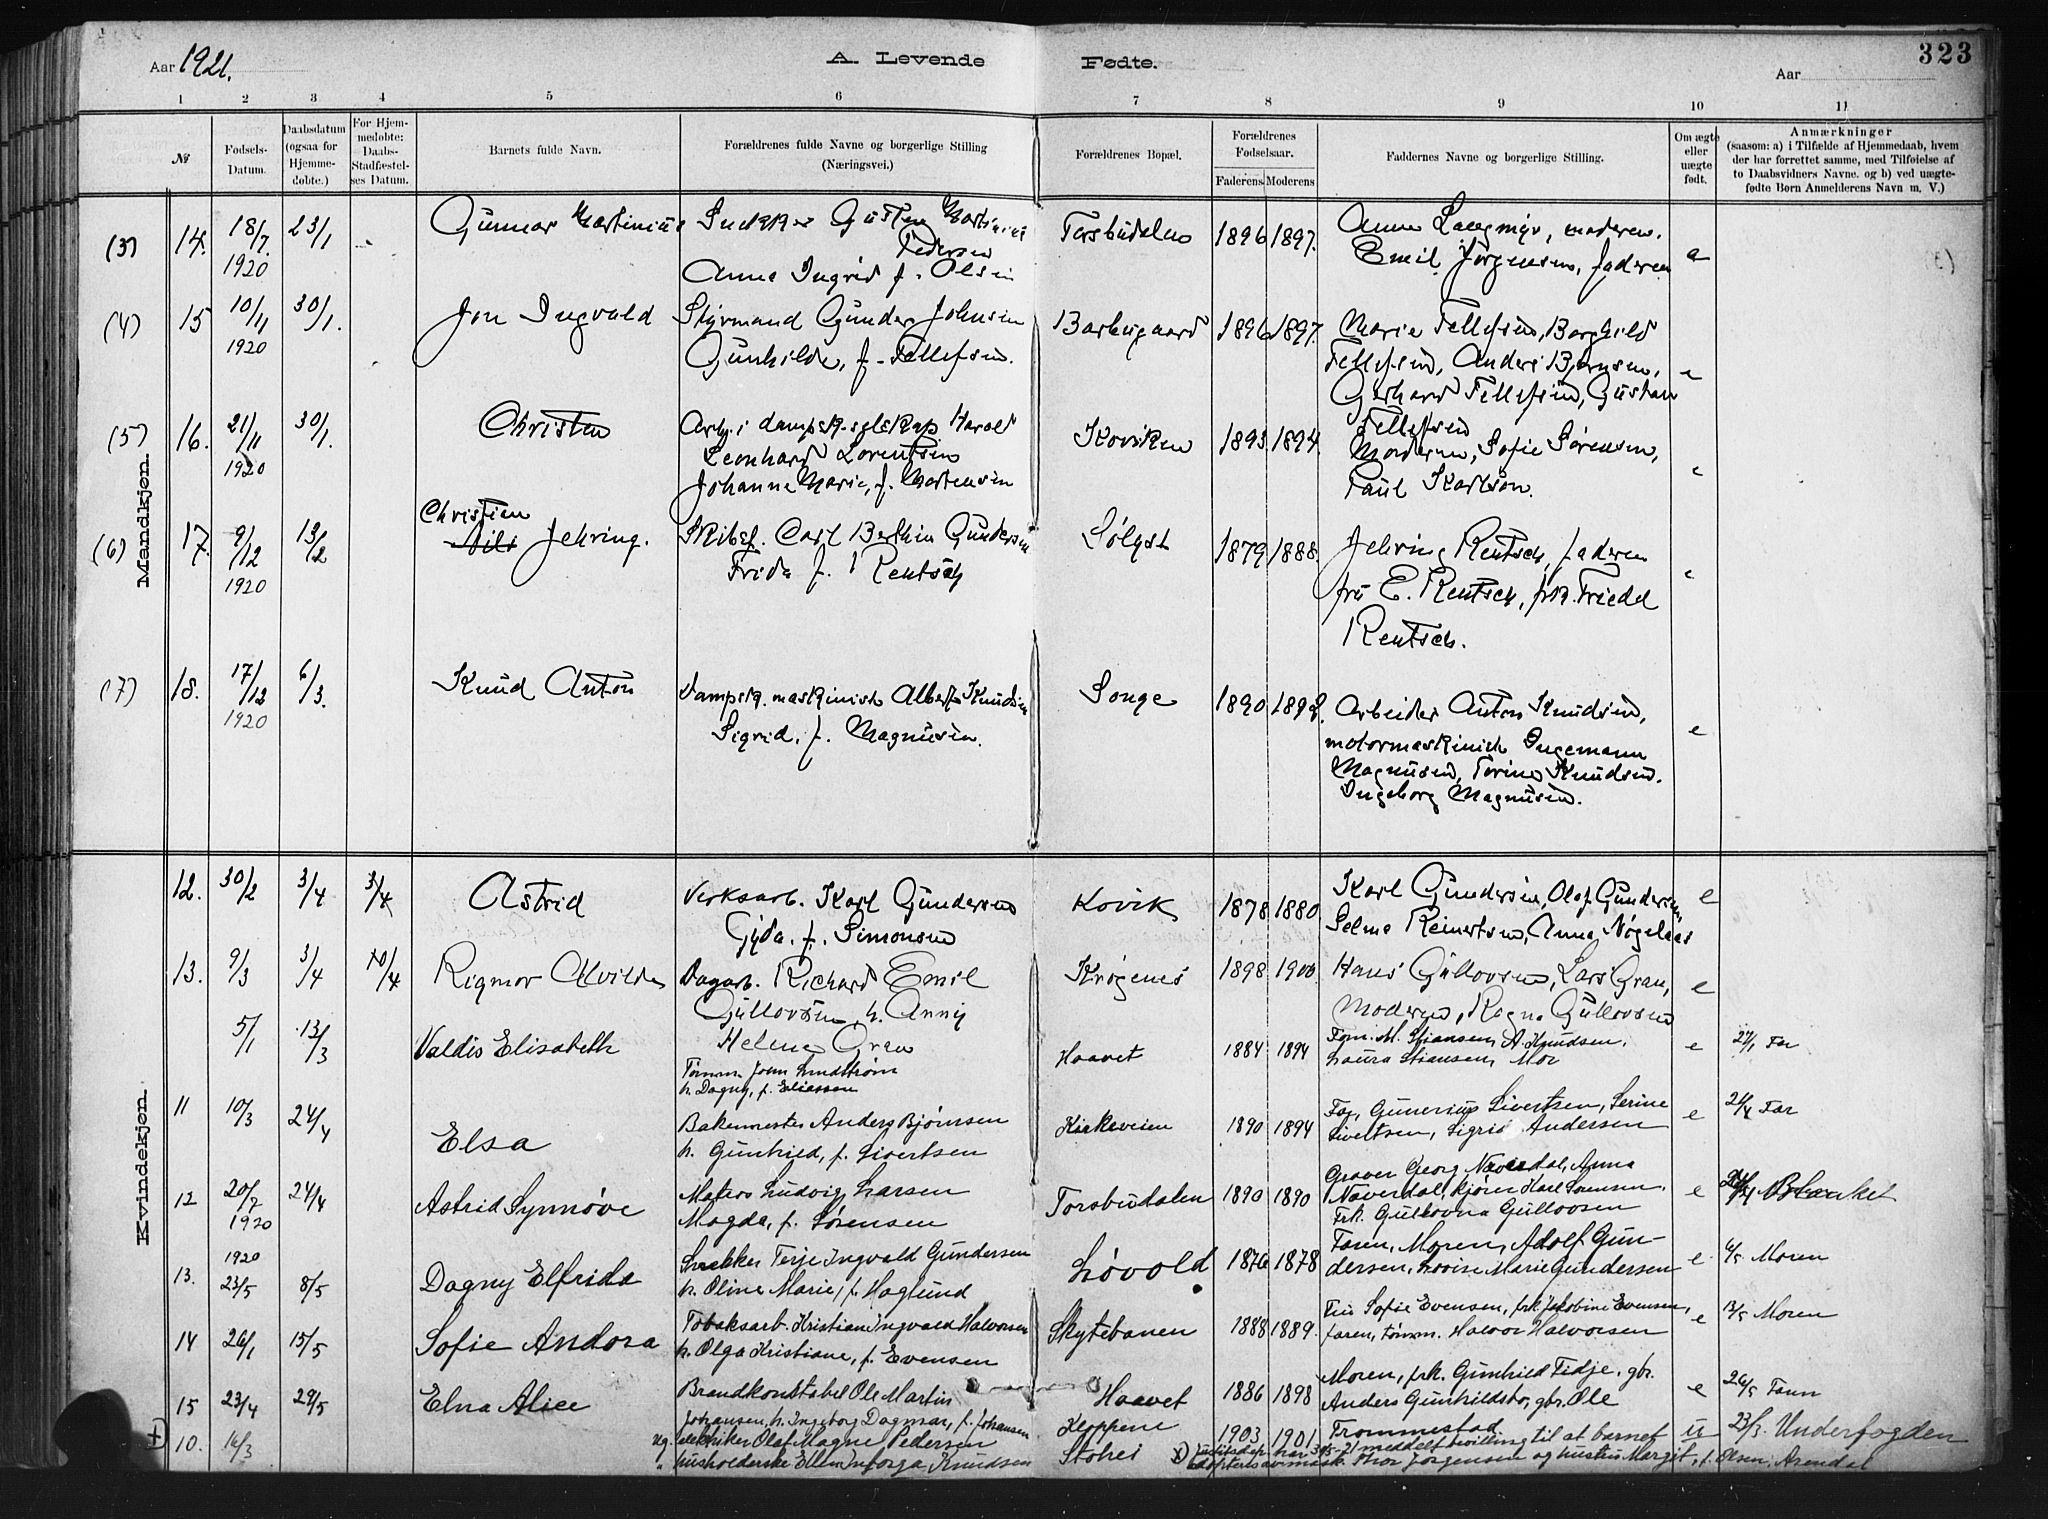 Aar 1921.
A. Levende Fødte.
Aar
323
1 2 3 4 5 6 7 8 9 10 11
№
Fødsels-Datum.
Daabsdatum (ogsaa for Hjemme-døbte.)
For Hjem-medøbte: Daabs-Stadfæstel-ses Datum.
Barnets fulde Navn.
Forældrenes fulde Navne og borgerlige Stilling (Næringsvei.)
Forældrenes Bopæl.
Forældrenes Fødselsaar.
Faderens Moderens
Faddernes Navne og borgerlige Stilling.
Om ægte eller uægte født.
Anmærkninger
(saasom: a) i Tilfælde af Hjemmedaab, hvem der har forrettet samme, med Tilføielse af to Daabsvidners Navne. og b) ved uægte-fødte Børn Anmelderens Navn m. V.)
Mandkjøn.
(3) 14. 18/7 1920 23/1 Gunnar Martinius
Pedersen
Anna Ingrid f. Olsen
Torsbudalen 1896 1897.
Anna Langmyr, moderen.
Emil Jörgensen, faderen
(4) 15 10/11 1920 30/1. Jon Ingvald
Styrmand Gunder Johnsen
Gunhilde, f. Tellefsen.
Barbugaard 1896 1897.
Marie Tellefsen, Borghild
Tellefsen, Anders Bjørnsen,
Gerhard Tellefsen, Gustav
Tellefsen
e
(5) 16. 21/11 1920 30/1. Christen
Arb. i dampsk.selskap Harald
Leonhard Lorentsen
Johanne Marie, f. Mortensen
Koviken 1893 1894.
Moderen, Sofie Sörensen,
Paul Karlson.
e
(6) 17. 9/12 1920 13/2 Christian
Nils Jehring.
Skibsf. Carl Berthin Gundersen
Frida f. Rentsch
Sölyst 1879 1888.
Jehring Rentsch, faderen
fru E. Rentsch, frk. Friedel
Rentsch.
e
(7) 18. 17/12 1920 6/3. Knud Anton
Dampsk. maskinist Albert Knudsen
Sigrid, f. Magnusen.
Songe 1890
Arbeider Anton Knudsen,
motormaskinist Ingemann
Magnusen, Torine Knudsen.
Ingeborg Magnusen.
e
Kvindekjøn.
12. 30/2 3/4 3/4 Astrid
Verksarb. Karl Gundersen
Gyda. f. Simonsen
Kovik 1878 1880.
Karl Gundersen, Olaf Gundersen,
Selma Reinertsen, Anna
e
13. 9/3 3/4 10/4 Rigmor Alvilde
Dagarb. Richard Emil
Gullovsen, h. Anny
Helene Gran
Krøgenes 1898 1900.
Hans Gullovsen, Lars Gran,
Moderen, Ragna Gullovsen
e
5/1 13/3 Valdis Elisabeth
Tømm. John Lundstrøm
h. Dagny, f. Eliassen
Haavet 1884 1894
Tøm. M. Stiansen, A. Knudsen,
Laura Stiansen, Mor
e 27/1 Far
11 10/3 24/4 Elsa
Bakermester Anders Bjørnsen
h. Gunhild, f. Sivertsen
Kirkeveien 1890 1894
Far, Gunerius Sivertsen, Serine
Sivertsen, Sigrid Andersen
e 24/4 Far
12 20/7 1920 24/4 Astrid Synnøve
Matros Ludvig Larsen
Magda, f. Sørensen
Torsbudalen 1890 1890
Graver Georg Naverdal, Anna
Naverdal, kjører Karl Sørensen,
Frk. Gullovna Gullovsen
e 24/4 Blanket
13. 1920 23/5 8/5 Dagny Elfrida
Snekker Terje Ingvald Gundersen
h. Oline Marie, f. Haglund
Løvold 1876 1878
Faren, Moren, Adolf Gun-
dersen, Lovise Marie Gundersen
e 4/5 Moren
14 26/1 15/5 Sofie Andora
Tobaksarb. Kristian Ingvald Halvorsen
h. Olga Kristiane, f. Evensen
Skytebanen 1888 1889.
Fru Sofie Evensen, frk. Jakobine Evensen,
faren, tømm. Halvor Halvorsen
e 13/5 Moren
15 23/4 29/5 Elna Alice
Brandkonstabel Ole Martin
Johansen, h. Ingeborg Dagmar, f. Johansen
Haavet 1886 1898
Moren, frk. Gunhild Tidje, gbr.
Anders Gunhildsbo, gbr. Ole
Frommestad
e 26/5 Faren
+) 10. 16/3
ug. elektriker Olaf Magne Pedersen
" husholderske Ellen Inborga Knudsen
Kloppene
Stokei
1903 1901
x) Justitsdep. har 30/5-21 meddelt bevilling til at barnet
adopteres av mask. Thor Jørgensen og hustru Margit, f. Olsen, Arendal
u 23/3. Underfogden